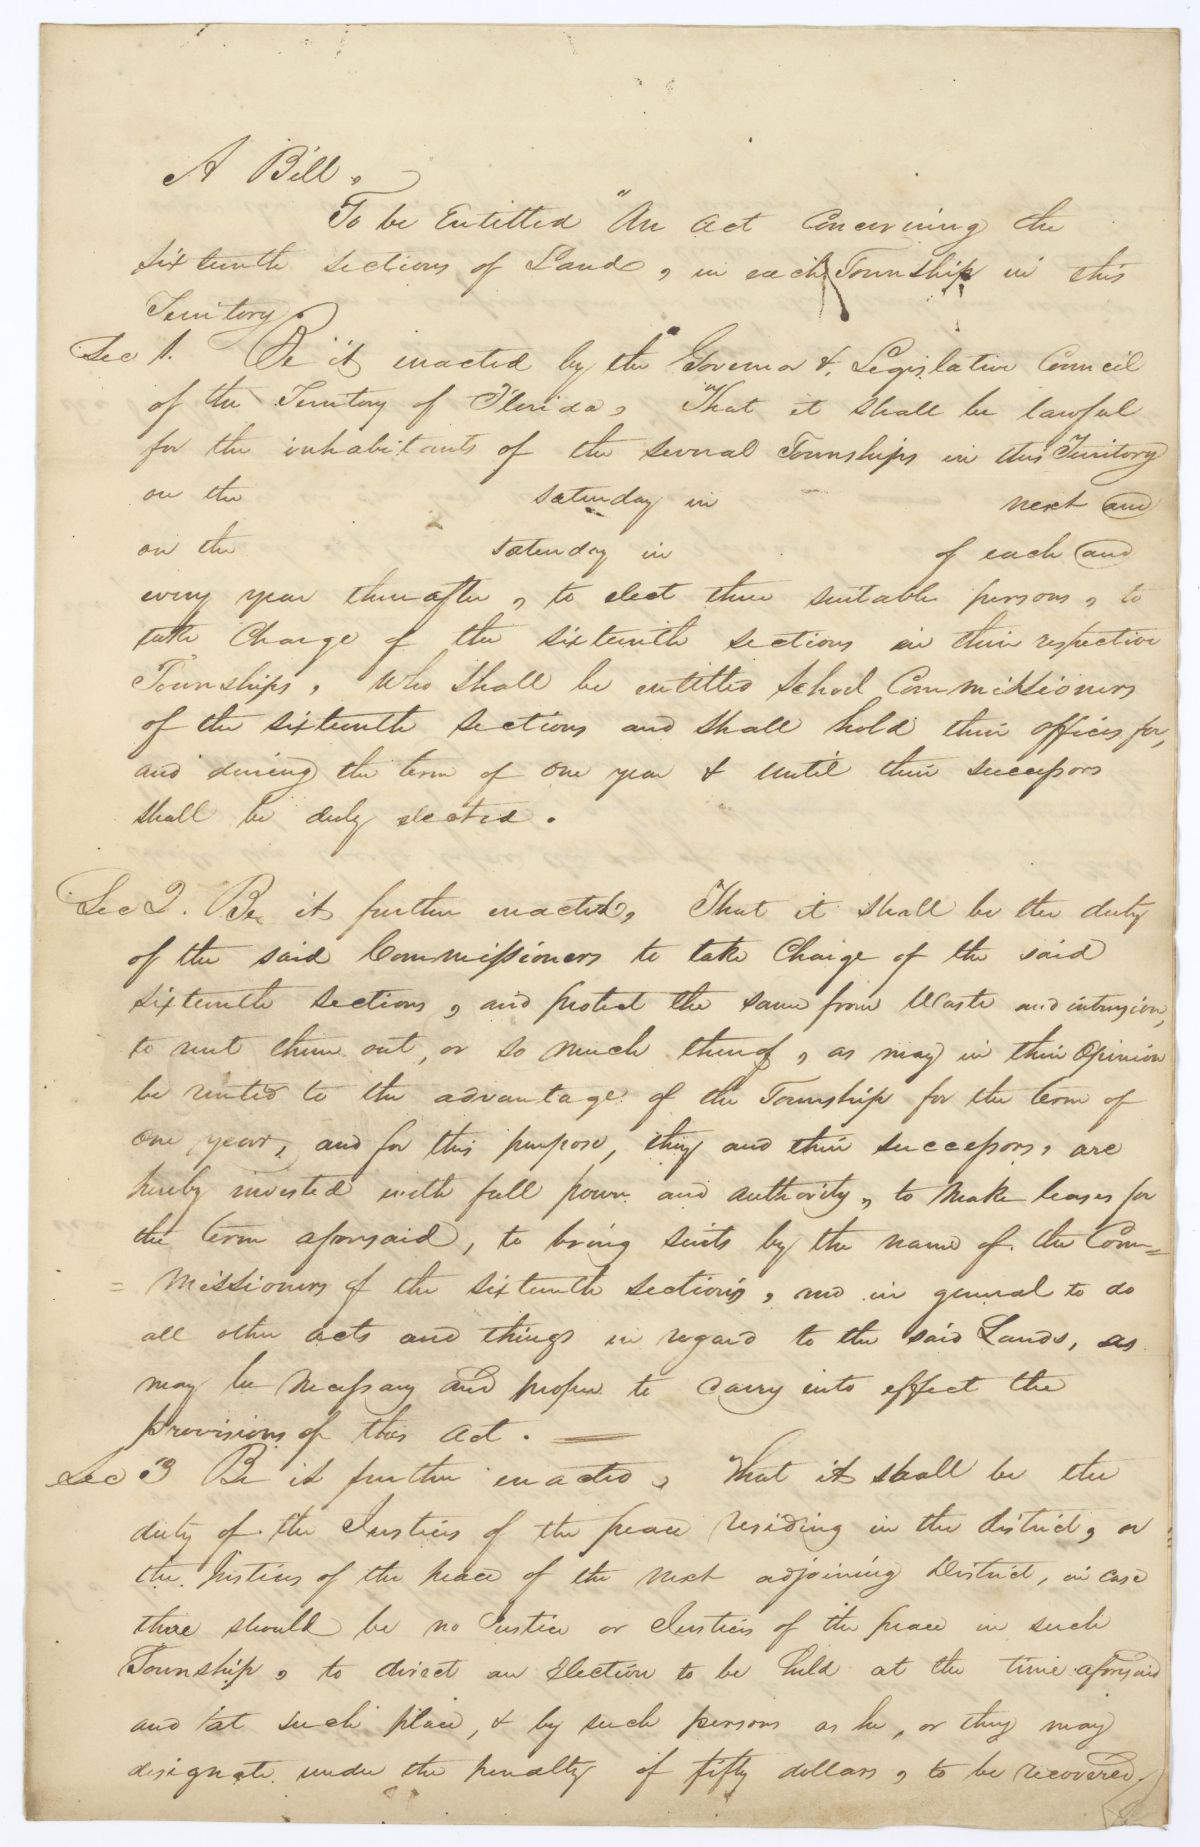 A Bill,
To be Entitled "An act Concerning the
sixteenth sections of Land, in each Township in this
Territory.
Sec 1. Be it enacted by the Governor & Legislative Council
of the Territory of Florida, "That it shall be lawful
for the inhabitants of the several Townships in this Territory
on the saturday in next and
on the saturday in of each and
every year thereafter, to elect three suitable persons, to
take Charge of the sixteenth sections in their respective
Townships, who shall be entitled School Commissioners
of the sixteenth sections and shall hold their offices for,
and during the term of one year & until their successors
shall be duly elected.
Sec 2. Be it further enacted, "That it shall be the duty
of the said Commissioners to take Charge of the said
sixteenth sections, and protect the same from Waste and intrusion,
to rent them out, or so much thereof, as may in their opinion
be rented to the advantage of the Township for the term of
one year, and for this purpose, they and their successors, are
hereby invested with full power and authority, to make leases for
the term aforesaid, to bring suits by the name of the Com=
=missioners of the sixteenth sections, and in general to do
all other acts and things in regard to the said Lands, as
may be necessary and proper to carry into effect the
provisions of this act.
Sec 3 Be it further enacted, "That it shall be the
duty of the Justices of the peace residing in the district, or
the Justices of the peace of the next adjoining District, in case
there should be no Justice or Justices of the peace in such
Township, to direct an Election to be held at the time aforesaid
and at such place, & by such persons as he, or they may
designate under the penalty of fifty dollars, to be recovered